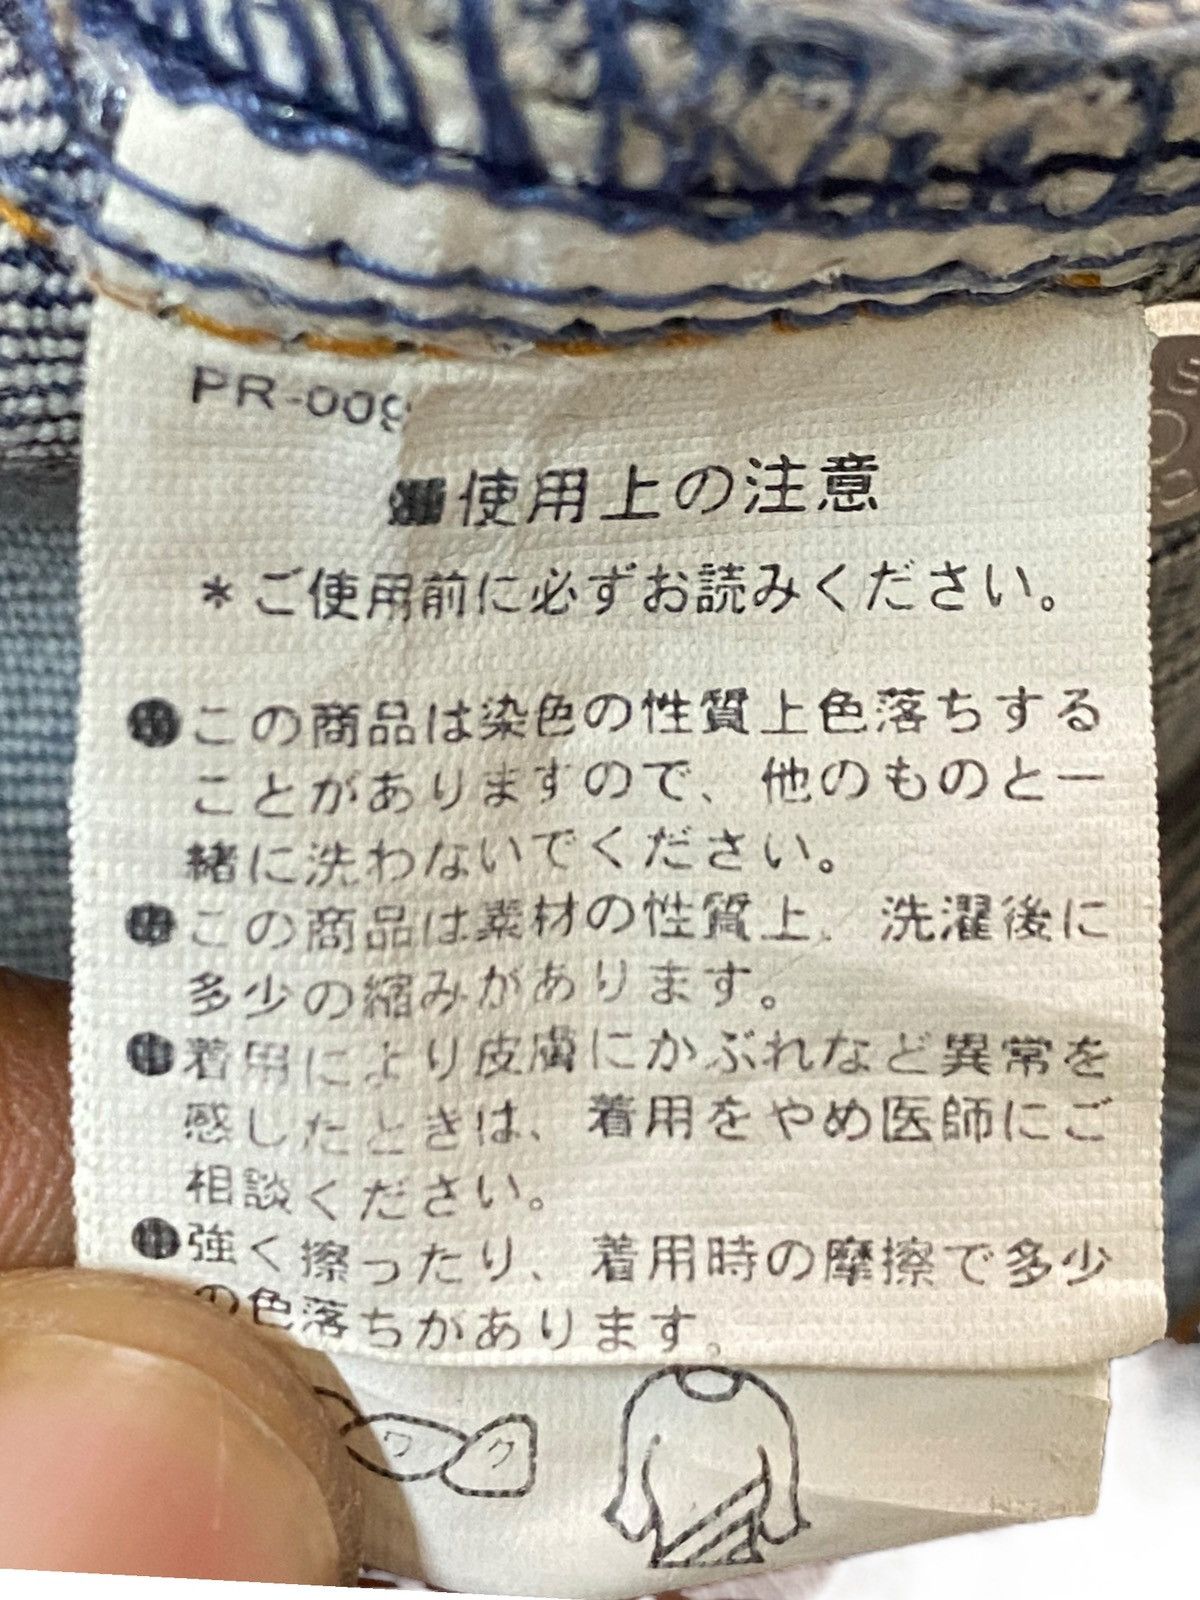 PR-009
■使用上の注意
*ご使用前に必ずお読みください。
●この商品は染色の性質上色落ちする
ことがありますので、他のものと一
緒に洗わないでください。
●この商品は素材の性質上、洗濯後に
多少の縮みがあります。
●着用により皮膚にかぶれなど異常を
感じたときは、着用をやめ医師にご
相談ください。
●強く擦ったり、着用時の摩擦で多少
の色落ちがあります。
ワ ク